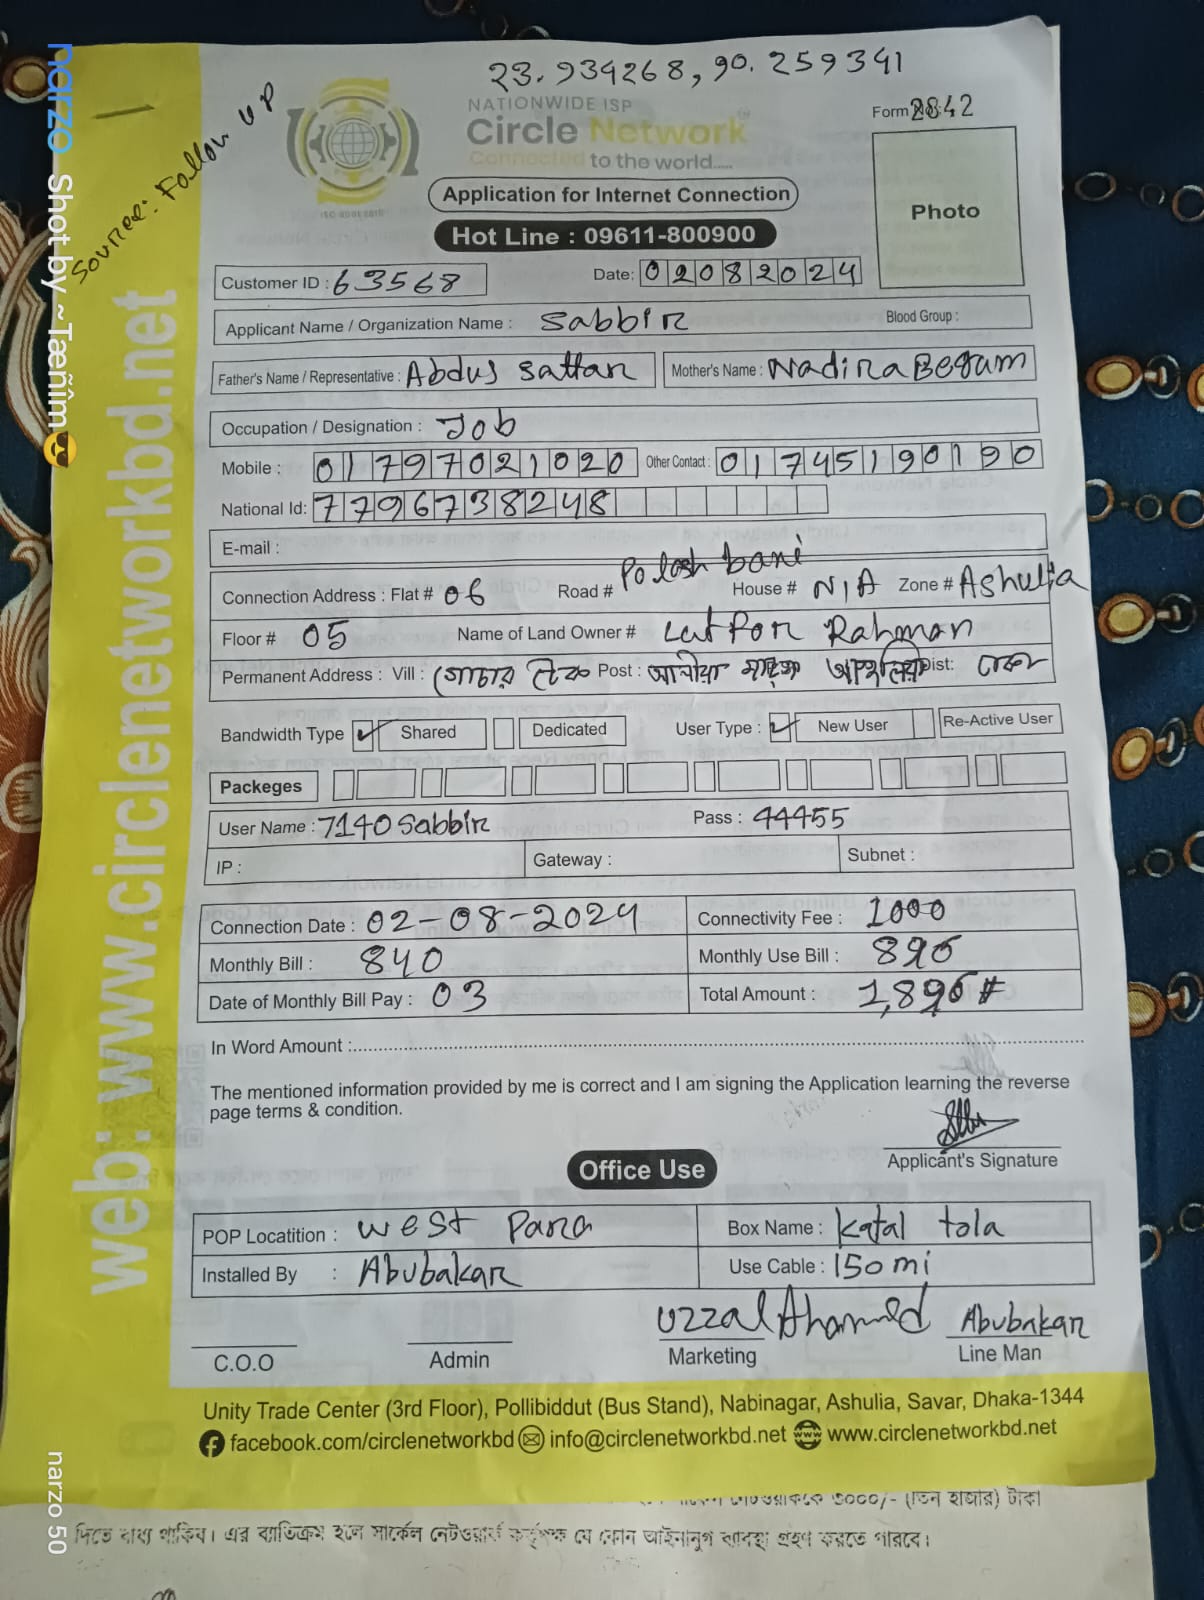 23.934268, 90.259341
Source: Follow UP
NATIONWIDE ISP
Circle Network
Connected to the world.....
ISO 9001:2015
Form No: 2842
Application for Internet Connection
Photo
Hot Line : 09611-800900
Customer ID : 63568 Date: 02082024
Applicant Name / Organization Name : Sabbir Blood Group :
Father's Name / Representative : Abdus Sattar Mother's Name : Nadira Begum
Occupation / Designation : Job
Mobile : 01797021020 Other Contact : 01745190190
National Id: 7796738248
E-mail :
Connection Address : Flat # 06 Road # Polash bari House # N/A Zone # Ashulia
Floor # 05 Name of Land Owner # Lutfor Rahman
Permanent Address : Vill : Post : Dist: ঢাকা
Bandwidth Type Shared Dedicated User Type : New User Re-Active User
Packeges
User Name : 7140Sabbir Pass : 44455
IP : Gateway : Subnet :
Connection Date : 02-08-2024 Connectivity Fee : 1000
Monthly Bill : 840 Monthly Use Bill : 896
Date of Monthly Bill Pay : 03 Total Amount : 1,896#
In Word Amount :
The mentioned information provided by me is correct and I am signing the Application learning the reverse
page terms & condition.
Applicant's Signature
Office Use
POP Locatition : West Para Box Name : Katal tola
Installed By : Abubakar Use Cable : 150 mi
Uzzal Ahamed Abubakar
C.O.O Admin Marketing Line Man
Unity Trade Center (3rd Floor), Pollibiddut (Bus Stand), Nabinagar, Ashulia, Savar, Dhaka-1344
facebook.com/circlenetworkbd info@circlenetworkbd.net www.circlenetworkbd.net
web: www.circlenetworkbd.net
৩০০০/- (তিন হাজার) টাকা
দিতে বাধ্য থাকিব। এর ব্যতিক্রম হলে সার্কেল নেটওয়ার্ক কর্তৃপক্ষ যে কোন আইনানুগ ব্যবস্থা গ্রহণ করতে পারবে।
narzo Shot by ~Tæñîm😎
narzo 50